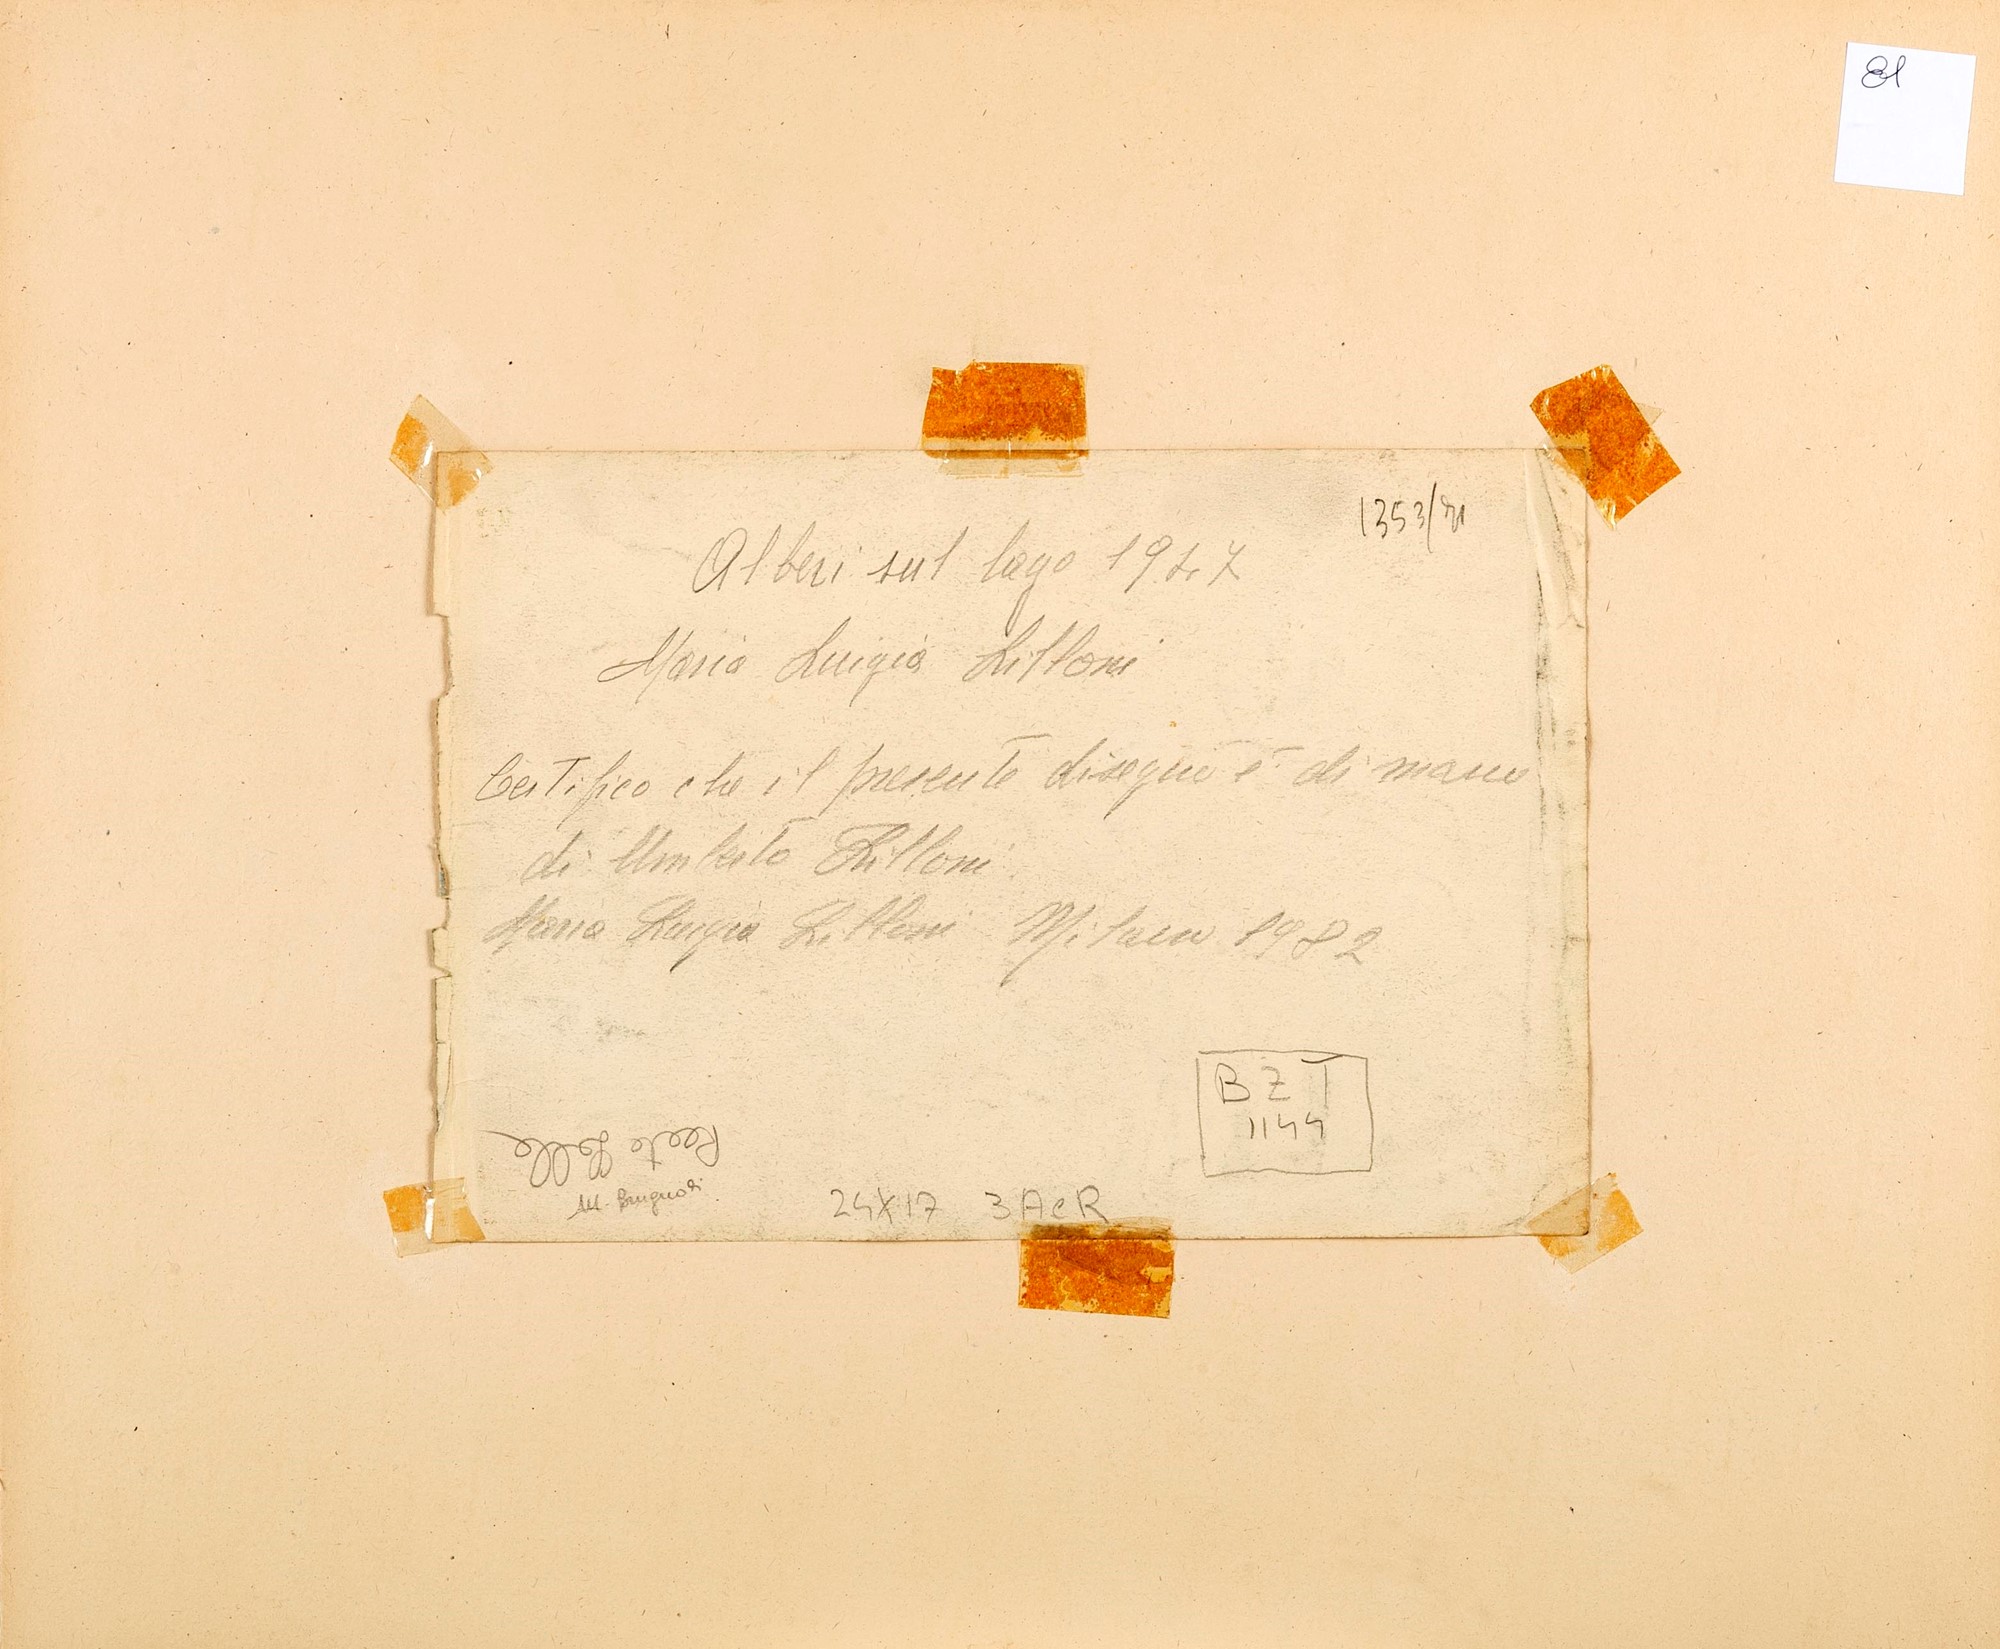 81
1353/71
Alberi sul lago 1947
Maria Luigia Lilloni
Certifico che il presente disegno è di mano
di Umberto Lilloni
Maria Luigia Lilloni Milano 1982
BZT
1144
24X17 3AeR